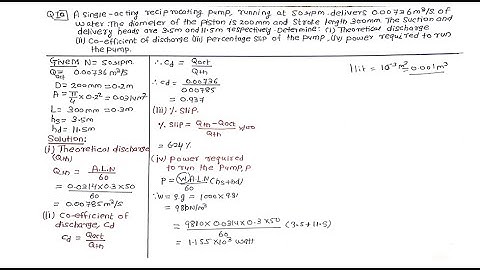 Q10 A single-acting reciprocating pump, running at 50rpm delivers 0.00736m³/s of
water. The diameter of the piston is 200mm and stroke length 300mm. The suction and
delivery heads are 3.5m and 11.5m respectively. Determine: (i) Theoretical discharge
(ii) Co-efficient of discharge (iii) percentage slip of the pump, (iv) power required to run
the pump.
Given N = 50rpm.
Q = 0.00736 m³/s
act
D = 200mm = 0.2m
A = π/4 × 0.2² = 0.0314m²
L = 300mm = 0.3m
hs = 3.5m
hd = 11.5m
Solution:
(i) Theoretical discharge
(Qth)
Qth = A.L.N/60
= 0.0314×0.3×50/60
= 0.00785m³/s
(ii) Co-efficient of
discharge, Cd
Cd = Qact/Qth
∴ Cd = Qact/Qth
= 0.00736/0.00785
= 0.937
(iii) % slip.
% slip = Qth - Qact/Qth ×100
= 6.24%
(iv) power required
to run the pump, P
P = W.A.L.N/60 (hs+hd)
∴ W = ρ.g = 1000×9.81
= 9810N/m³
= 9810×0.0314×0.3×50/60 (3.5+11.5)
= 1.155×10³ watt
1 lit = 10⁻³m³ = 0.001m³